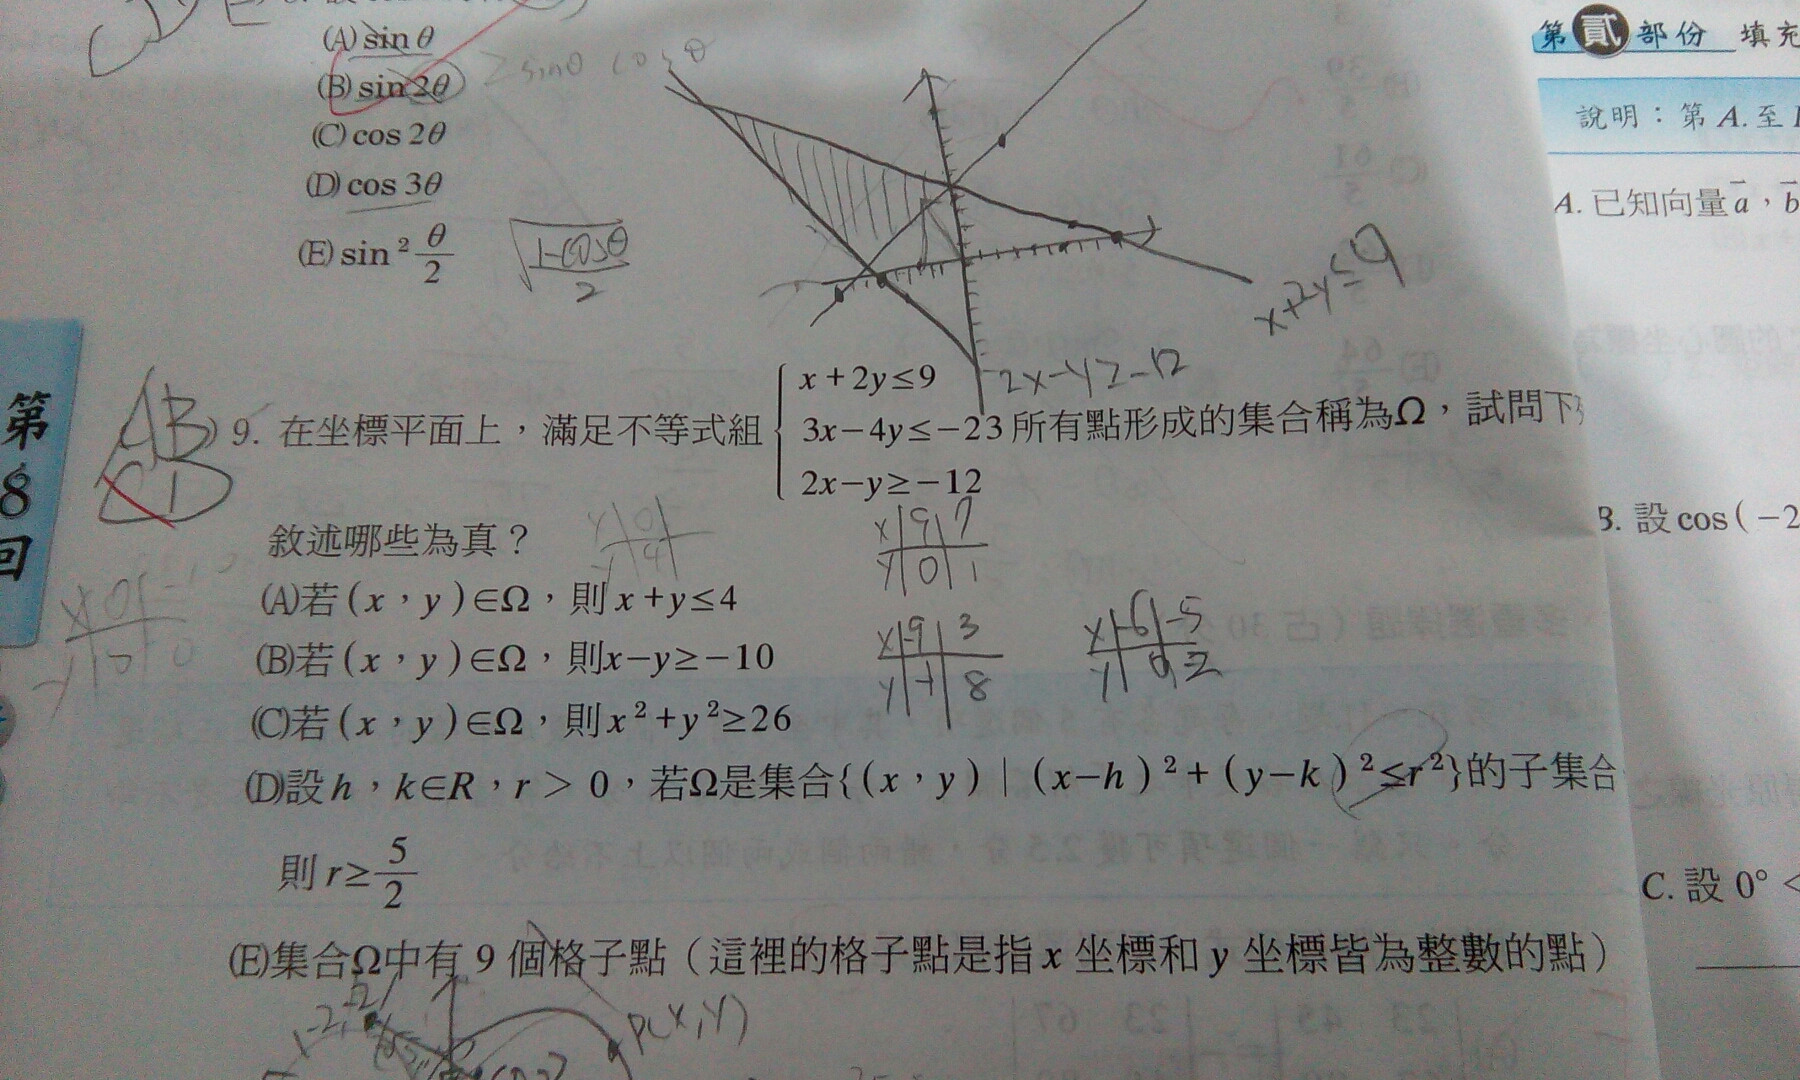 (A) sin θ
(B) sin 2θ
2 sinθ cosθ
(C) cos 2θ
(D) cos 3θ
(E) sin² θ/2
√(1-cosθ)/2
x+2y≤9
2x-y≥-12
第8回
ABCD
9. 在坐標平面上，滿足不等式組
x+2y≤9
3x-4y≤-23
2x-y≥-12
所有點形成的集合稱為Ω，試問下
敘述哪些為真？
x 9 7
y 0 1
(A)若(x，y)∈Ω，則x+y≤4
(B)若(x，y)∈Ω，則x-y≥-10
x -9 3
y -1 8
x -6 -5
(C)若(x，y)∈Ω，則x²+y²≥26
(D)設h，k∈R，r > 0，若Ω是集合{(x，y)｜(x-h)²+(y-k)²≤r²}的子集合
則r≥5/2
(E)集合Ω中有 9 個格子點（這裡的格子點是指x坐標和y坐標皆為整數的點）
P(x,y)
第貳部份 填充
說明：第A.至
A. 已知向量a，b
B. 設cos(-2
C. 設0°<